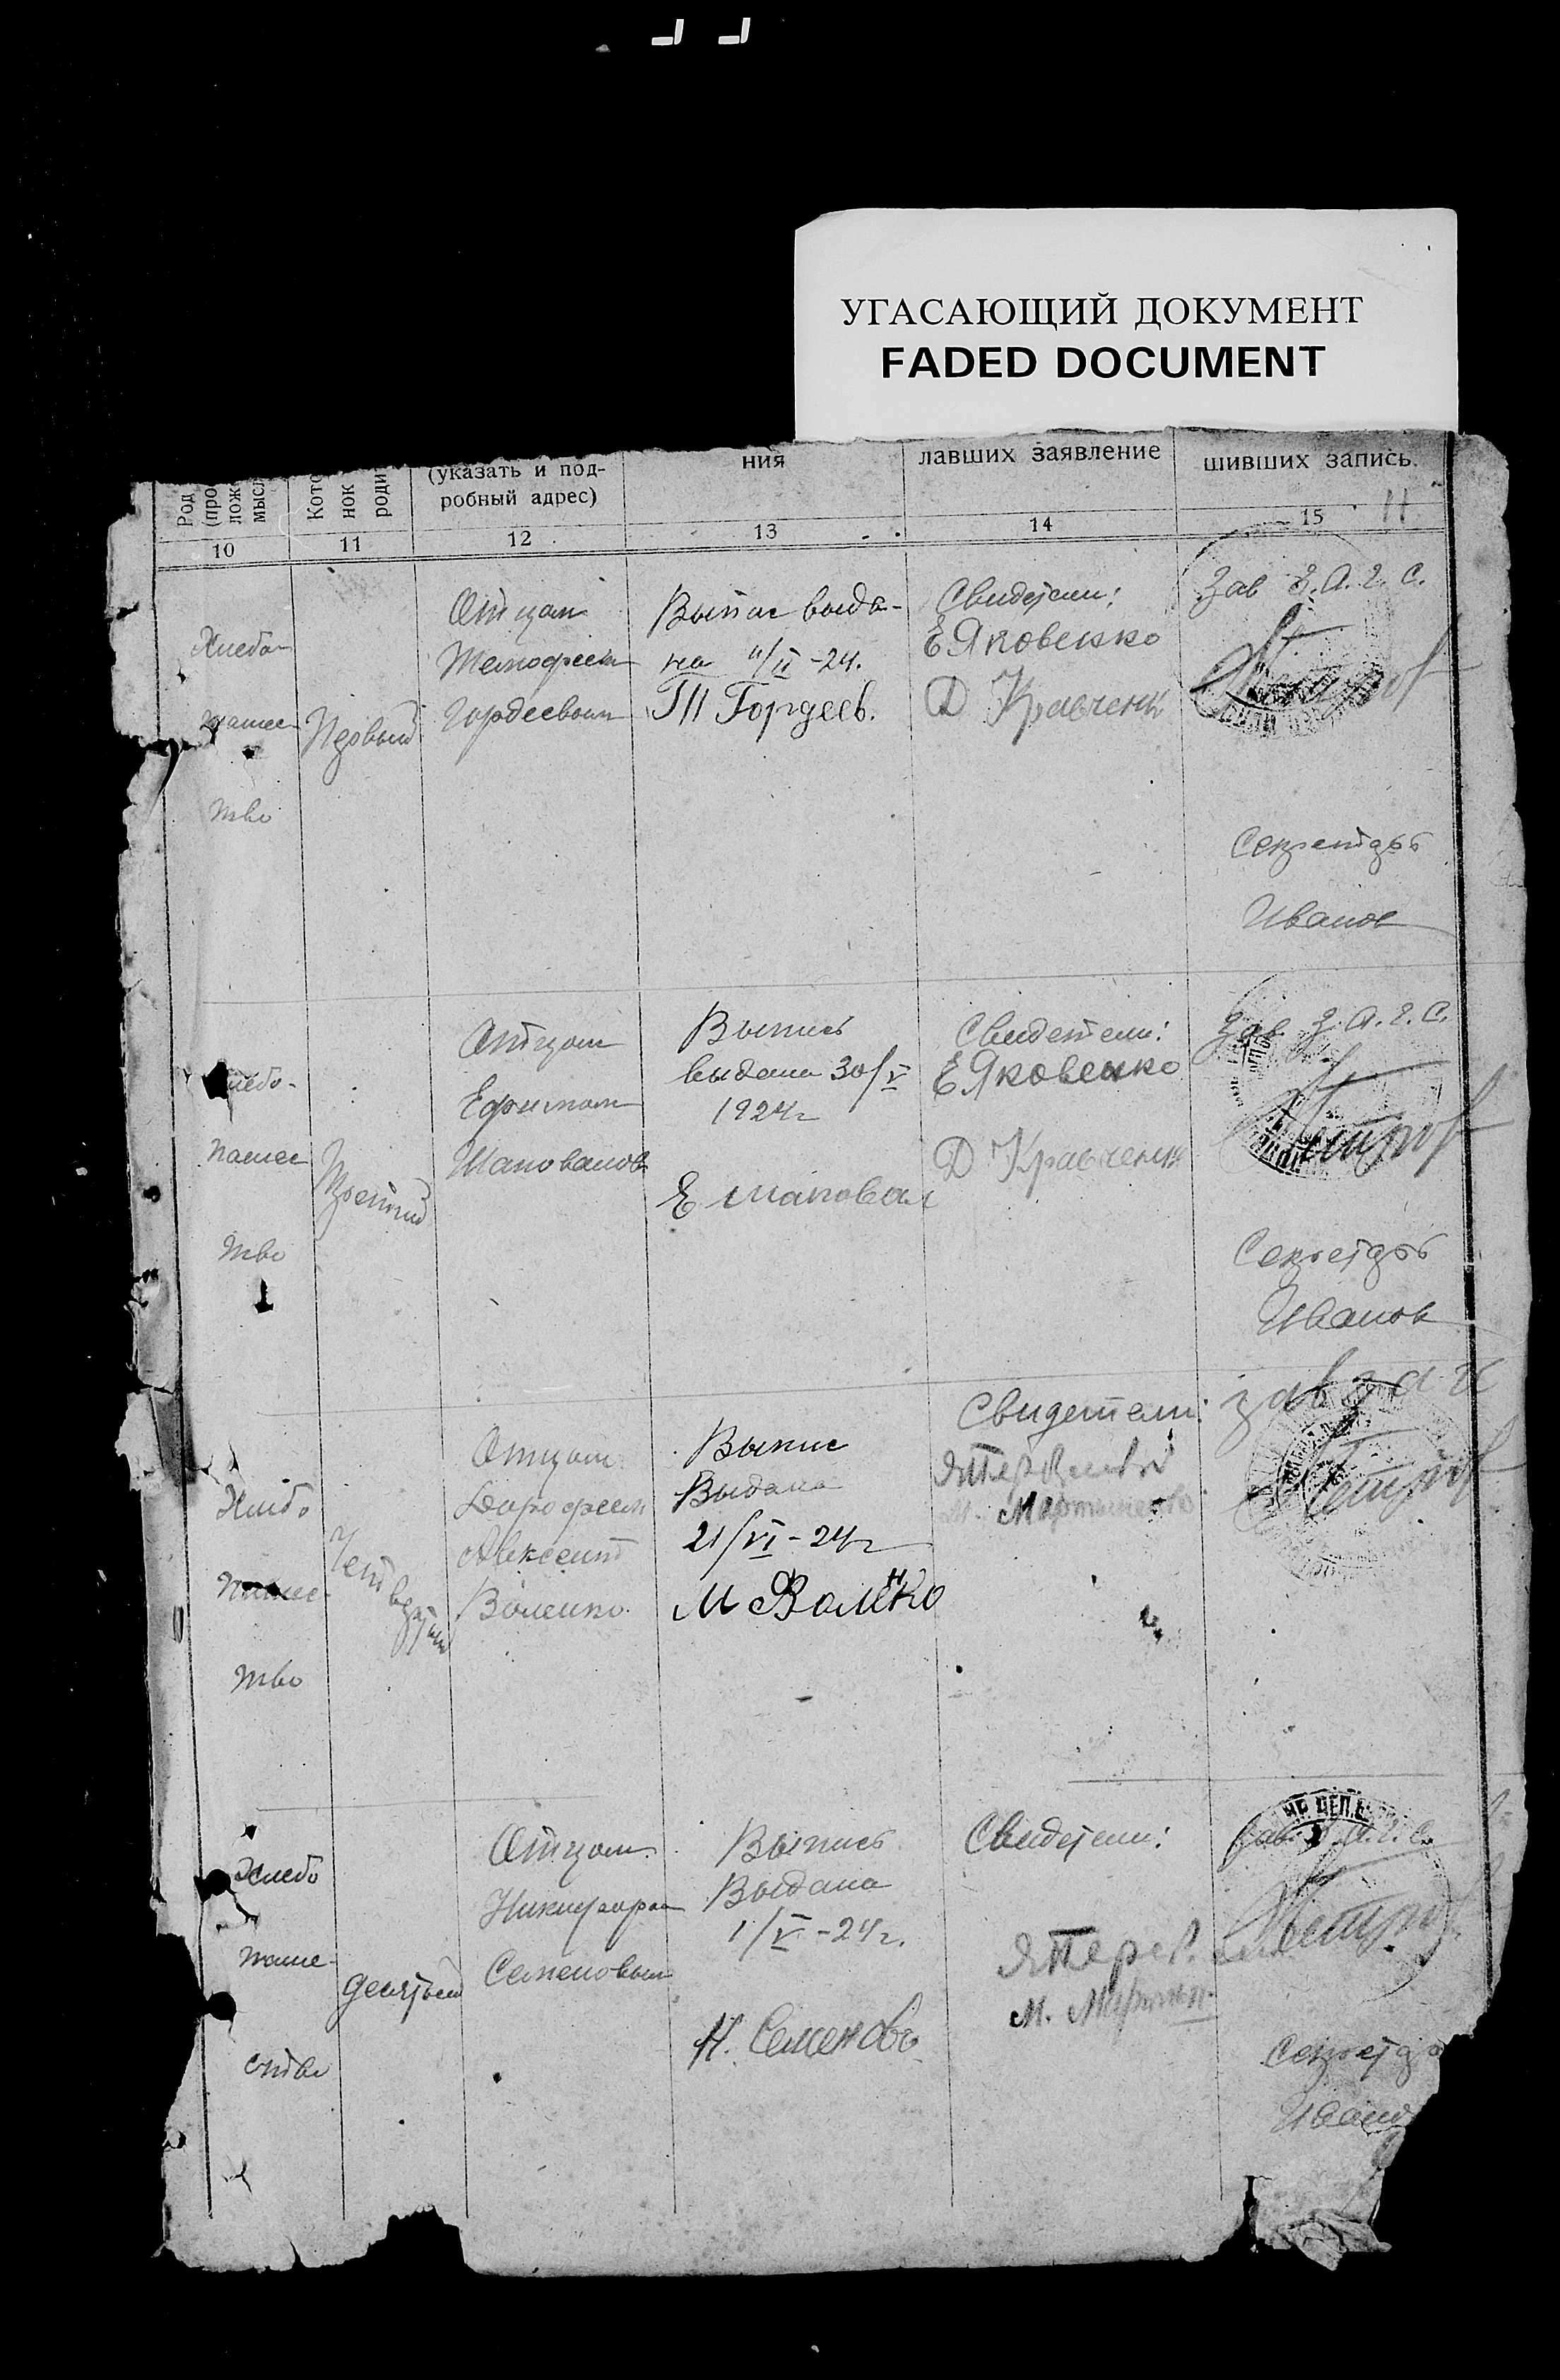 УГАСАЮЩИЙ ДОКУМЕНТ
FADED DOCUMENT
Род
(про
лож
мысл
Кото
нок
роди
(указать и под-
робный адрес)
ния
лавших заявление
шивших запись.
11
10
11
12
13
14
15
Хлебо-
пашес
тво
Первый
Отцом
Тимофеем
Гордеевым
Выпис выда-
на 11/II-24.
Т П Гордеев.
Свидетели:
Е Яковенко
Д Кравченк
Зав З.А.Г.С.
Петров
Секретарь
Иванов
хлебо-
пашес
тво
Третий
Отцом
Ефимом
Шаповалов
Выпись
выдана 30/V
1924г
Е шаповал
Свидетели:
Е Яковенко
Д Кравченк
Зав. З.А.Г.С.
Петров
Секретарь
Иванов
Хлебо
пашес-
тво
Четвертый
Отцом
Дорофеем
Воленко.
Выпис
Выдана
21/VI-24г
Свидетели:
М. Мартиненко
зав з а г
Петров
Хлебо
паше-
ство
десятый
Отцом
Никифором
Семеновым
Выпись
Выдана
1/V-24г.
Н. Семеновъ
Свидетели:
М. Мартин
Зав. З.А.Г.С.
Петров
Секретар
Иванов